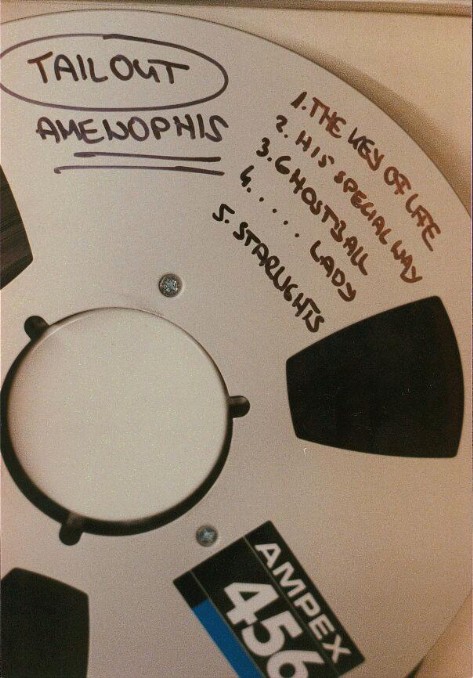 TAILOUT
AMENOPHIS
1. THE KEY OF LIFE
2. HIS SPECIAL WAY
3. GHOSTBALL
4. . . . . . LADY
5. STARLIGHTS
AMPEX
456